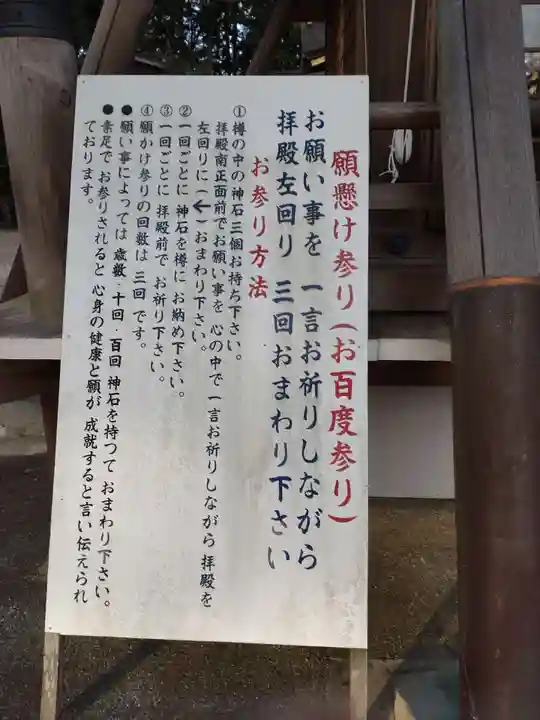 願懸け参り(お百度参り)
お願い事を 一言お祈りしながら
拝殿左回り 三回おまわり下さい
お参り方法
①樽の中の神石三個お持ち下さい。
拝殿南正面前でお願い事を 心の中で 一言お祈りしながら 拝殿を
左回りに(←)おまわり下さい。
②一回ごとに 神石を樽に お納め下さい。
③一回ごとに 拝殿前で お祈り下さい。
④願かけ参りの回数は 三回 です。
●願い事によっては 歳数・十回・百回 神石を持つて おまわり下さい。
●素足で お参りされると 心身の健康と願が 成就すると言い伝えられ
ております。